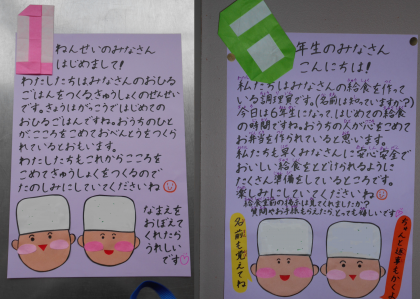 1
ねんせいのみなさん
はじめまして!
わたしたちはみなさんのおひる
ごはんをつくるきゅうしょくのせんせい
です。きょうはがっこうではじめての
おひるごはんですね。おうちのひと
がこころをこめておべんとうをつくら
れているとおもいます。
わたしたちもこれからこころを
こめてきゅうしょくをつくるので
たのしみにしていてくださいね
なまえを
おぼえて
くれたら
うれしい
です
6
年生のみなさん
こんにちは!
私たちはみなさんの給食を作って
いる調理員です。(名前は知っていますか?)
今日は6年生になって、はじめての給食
の時間ですね。おうちの人が心をこめて
お弁当を作られていると思います。
私たちも早くみなさんに安心安全で
おいしい給食をとどけられるように
たくさん準備をしているところです。
楽しみにしていてくださいね
給食室前の掲示は見てくれましたか?
質問やお手紙もらえたら、とっても嬉しいです
名前も覚えてね
ちゃんと返事もかくよ